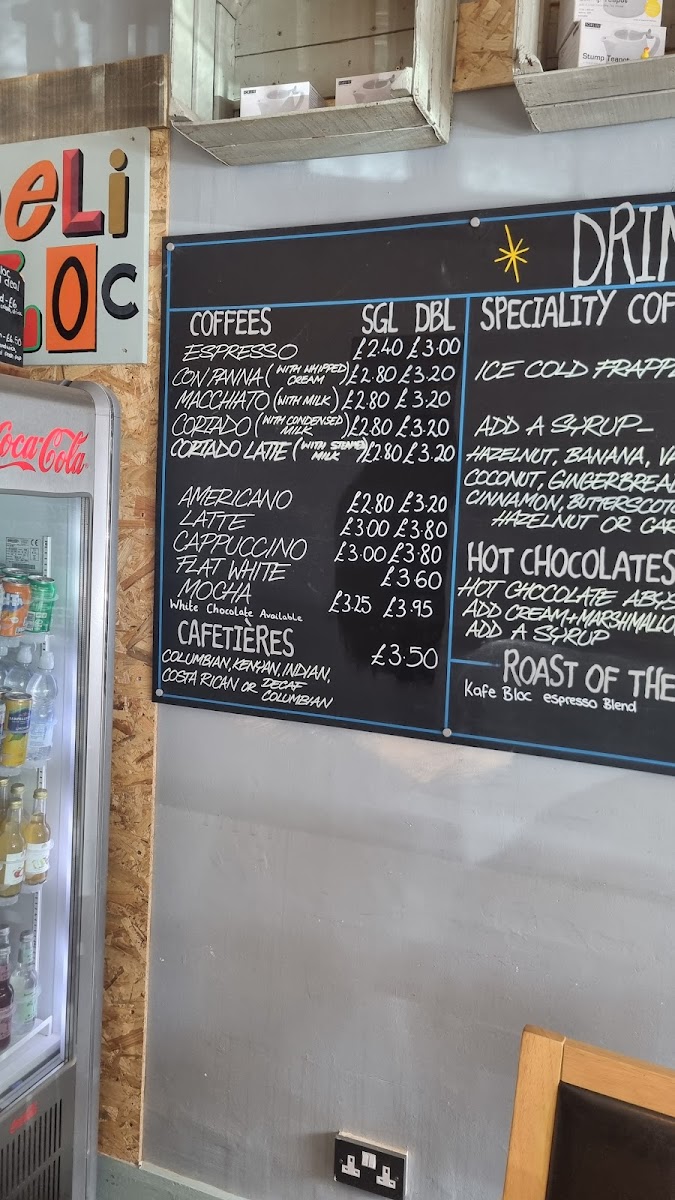 Stump Teapot
Deli
LOC
Coca-Cola
DRIN
COFFEES SGL DBL
ESPRESSO £2.40 £3.00
CON PANNA (WITH WHIPPED CREAM) £2.80 £3.20
MACCHIATO (WITH MILK) £2.80 £3.20
CORTADO (WITH CONDENSED MILK) £2.80 £3.20
CORTADO LATTE (WITH STEAMED MILK) £2.80 £3.20
AMERICANO £2.80 £3.20
LATTE £3.00 £3.80
CAPPUCCINO £3.00 £3.80
FLAT WHITE £3.60
MOCHA £3.25 £3.95
White Chocolate Available
CAFETIÈRES £3.50
COLUMBIAN, KENYAN, INDIAN,
COSTA RICAN OR DECAF COLUMBIAN
SPECIALITY COF
ICE COLD FRAPP
ADD A SYRUP-
HAZELNUT, BANANA, VA
COCONUT, GINGERBREAD
CINNAMON, BUTTERSCOTC
HAZELNUT OR CAR
HOT CHOCOLATES
HOT CHOCOLATE ABYS
ADD CREAM+MARSHMALLO
ADD A SYRUP
ROAST OF THE
Kafe Bloc espresso Blend